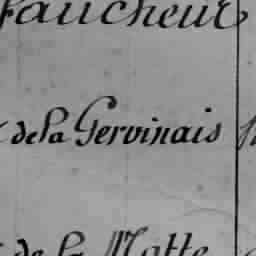 Faucheur
de la Gervinais
de la Motte